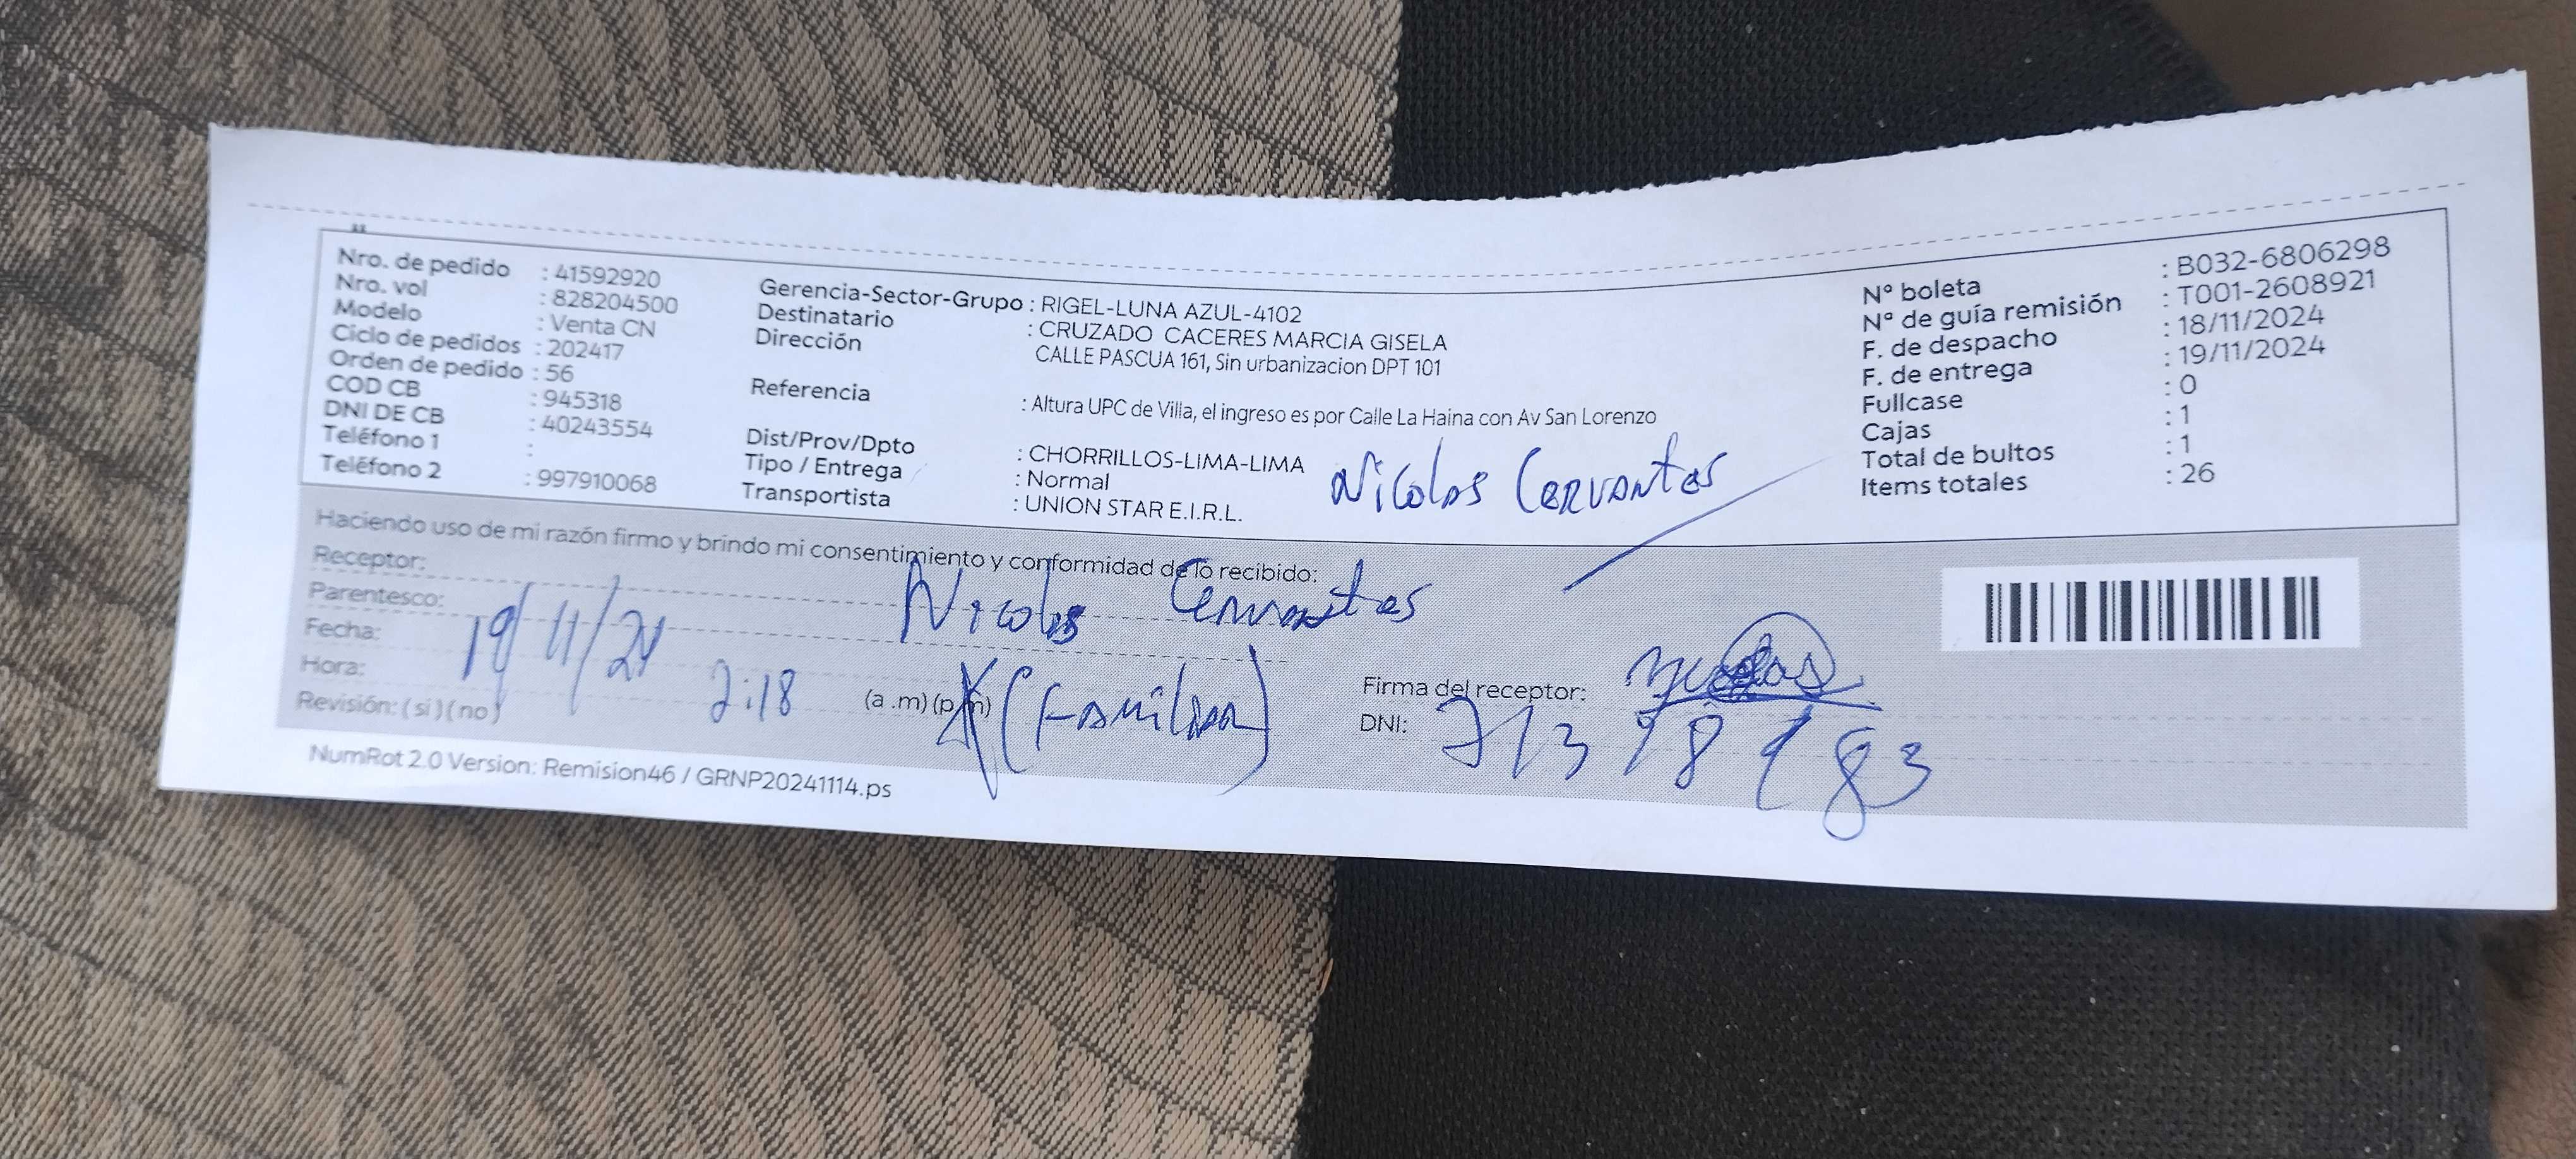 Nro. de pedido : 41592920
Nro. vol : 828204500
Modelo : Venta CN
Ciclo de pedidos : 202417
Orden de pedido : 56
COD CB : 945318
DNI DE CB : 40243554
Teléfono 1 :
Teléfono 2 : 997910068
Gerencia-Sector-Grupo : RIGEL-LUNA AZUL-4102
Destinatario : CRUZADO CACERES MARCIA GISELA
Dirección CALLE PASCUA 161, Sin urbanizacion DPT 101
Referencia : Altura UPC de Villa, el ingreso es por Calle La Haina con Av San Lorenzo
Dist/Prov/Dpto : CHORRILLOS-LIMA-LIMA
Tipo / Entrega : Normal
Transportista : UNION STAR E.I.R.L.
Nicolas Cervantes
N° boleta : B032-6806298
N° de guía remisión : T001-2608921
F. de despacho : 18/11/2024
F. de entrega : 19/11/2024
Fullcase : 0
Cajas : 1
Total de bultos : 1
Items totales : 26
Haciendo uso de mi razón firmo y brindo mi consentimiento y conformidad de lo recibido:
Receptor: Nicolas Cervantes
Parentesco:
Fecha: 19/11/24
Hora: 2:18 (a .m) (p.m) (Familiar)
Revisión: ( si ) ( no )
Firma del receptor: Nicolas
DNI:
NumRot 2.0 Version: Remision46 / GRNP20241114.ps